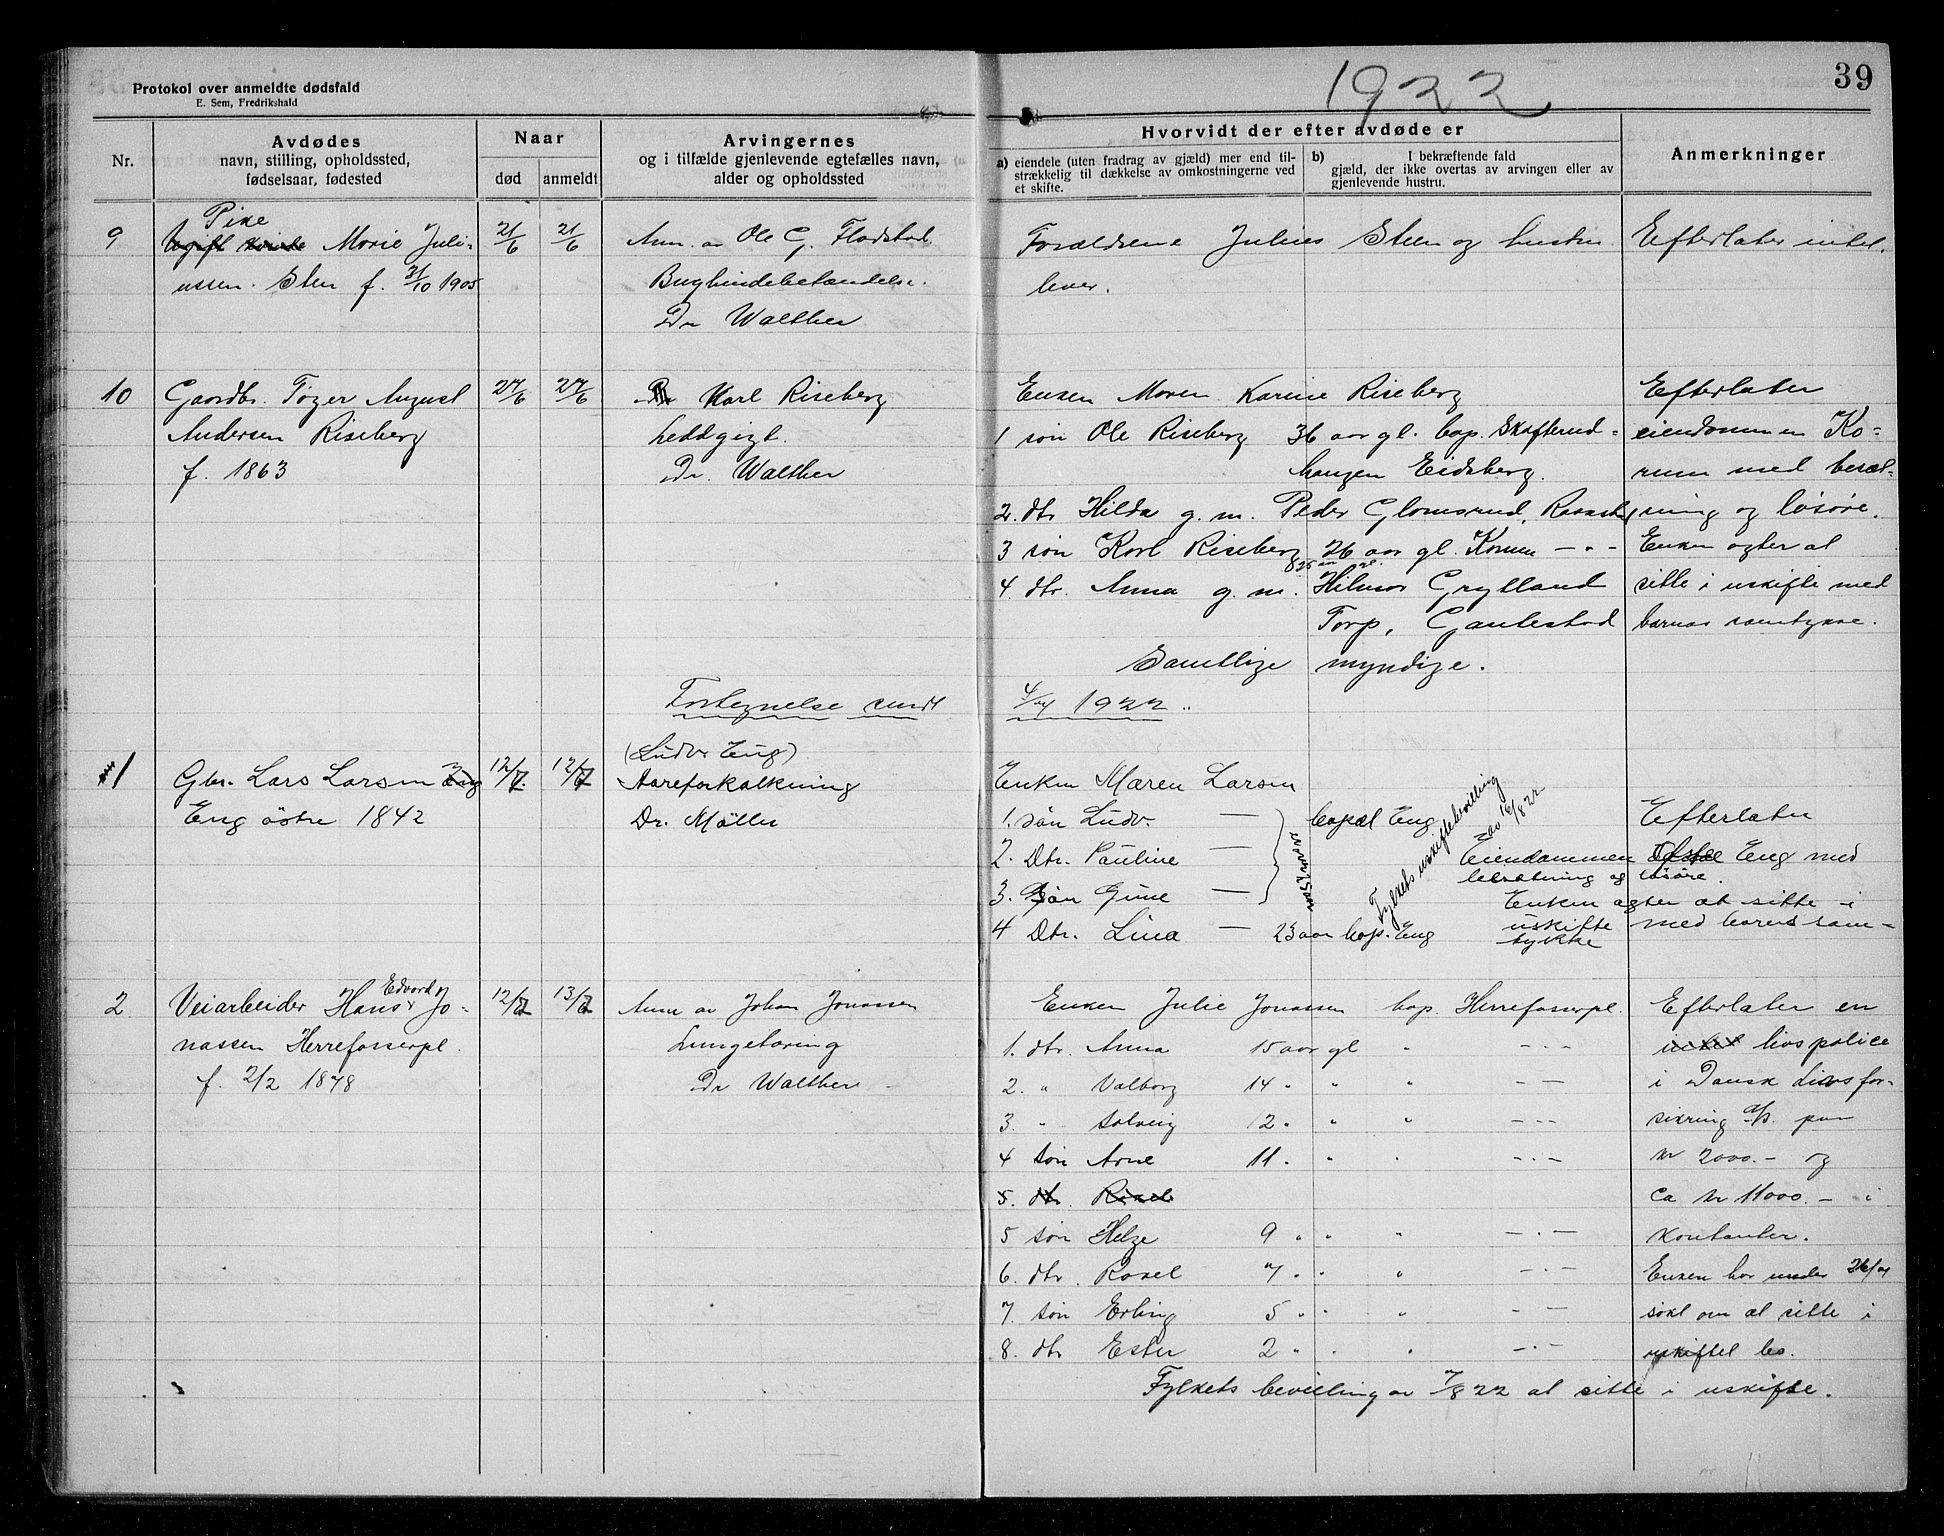 Protokol over anmeldte dødsfald
E. Sem, Fredrikshald
1922
39
Nr.
Avdødes
navn, stilling, opholdssted,
fødselsaar, fødested
Naar
død
anmeldt
Arvingernes
og i tilfælde gjenlevende egtefælles navn,
alder og opholdssted
Hvorvidt der efter avdøde er
a) eiendele (uten fradrag av gjæld) mer end til-
strækkelig til dækkelse av omkostningerne ved
et skifte.
b) I bekræftende fald
gjæld, der ikke overtas av arvingen eller av
gjenlevende hustru.
Anmerkninger
9
Pike
Ugift kvinde Marie Juli-
ussen. Sten f. 31/10 1905
21/6
21/6
Anm. av Ole G. Flodstad
Bughindebetændelse.
Dr Walther
Forældrene Julius Steen og hustru
lever.
Efterlater intet.
10
Gaardbr. Tøger August
Andersen Riseberg
f. 1863
27/6
27/6
Karl Riseberg
Leddgigt.
Dr. Walther
Enken Maren Karine Riseberg
1 søn Ole Riseberg 36 aar gl. bop. Skofterud-
haugen Eidsberg.
2. dtr Hilda g. m. Peder Glomsrud, Rakkestad
3 søn Karl Riseberg 26 aar gl. Korum — " —
4. dtr. Anna g. m. Hilmar Grylland
Torp,
Samtlige myndige.
Efterlater
eiendommen Ko-
rum med besæt-
ning og løsøre.
Enken agter at
sitte i uskifte med
barnas samtykke.
Fortegnelse sendt
4/7 1922.
1
Gbr. Lars Larsen Eng
Eng østre 1842
12/7.
12/7
(Ludv. Eng)
Aareforkalkning
Dr. Møller
Enken Maren Larsen
1. søn Ludv. — bopæl Eng
2. Dtr. Pauline —
3. Søn Gune —
4 Dtr. Lina — 23 aar bop. Eng
Fylkets uskiftebevilling
av 16/8 22
Efterlater
Eiendommen Østre Eng med
besætning og løsøre.
Enken agter at sitte i
uskifte med barens sam-
tykke
2
Veiarbeider Hans Edvard Jo-
nassen Herrefosserpl.
f. 2/2 1878
12/7
13/7
Anm av Johan Jonassen
Lungetæring
Dr Walther
Enken Julie Jonassen bop. Herrefosserpl.
1. dtr. Anna 15 aar gl " — " —
2. " Valborg 14 " " " — " —
3. " Solveig 12 " " " — " —
4 søn Arne 11 " " " — " —
5. dtr. Rakel
5 søn Helge 9 " " " — " —
6. dtr. Rakel 7 " " " — " —
7. søn Erling 5 " " " — " —
8. dtr Ester 2 " " " — " —
Fylkets bevilling av 7/8 22 at sitte i uskifte.
Efterlater en
intet livspolice
i Dansk Livsfor-
sikring a/s paa
kr 2000.- og
ca kr 11000.- i
kontanter.
Enken har under 26/7
søkt om at sitte i
uskiftet bo.